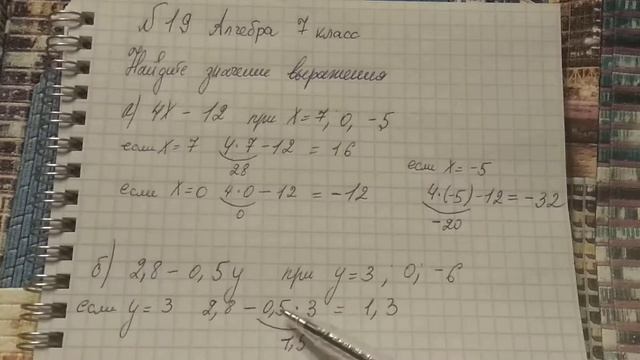 №19 Алгебра 7 класс
Найдите значение выражения
а) 4x - 12 при x = 7, 0, -5
если x = 7 4·7 - 12 = 16
28
если x = 0 4·0 - 12 = -12
0
если x = -5
4·(-5) - 12 = -32
-20
б) 2,8 - 0,5y при y = 3; 0; -6
если y = 3 2,8 - 0,5·3 = 1,3
1,5